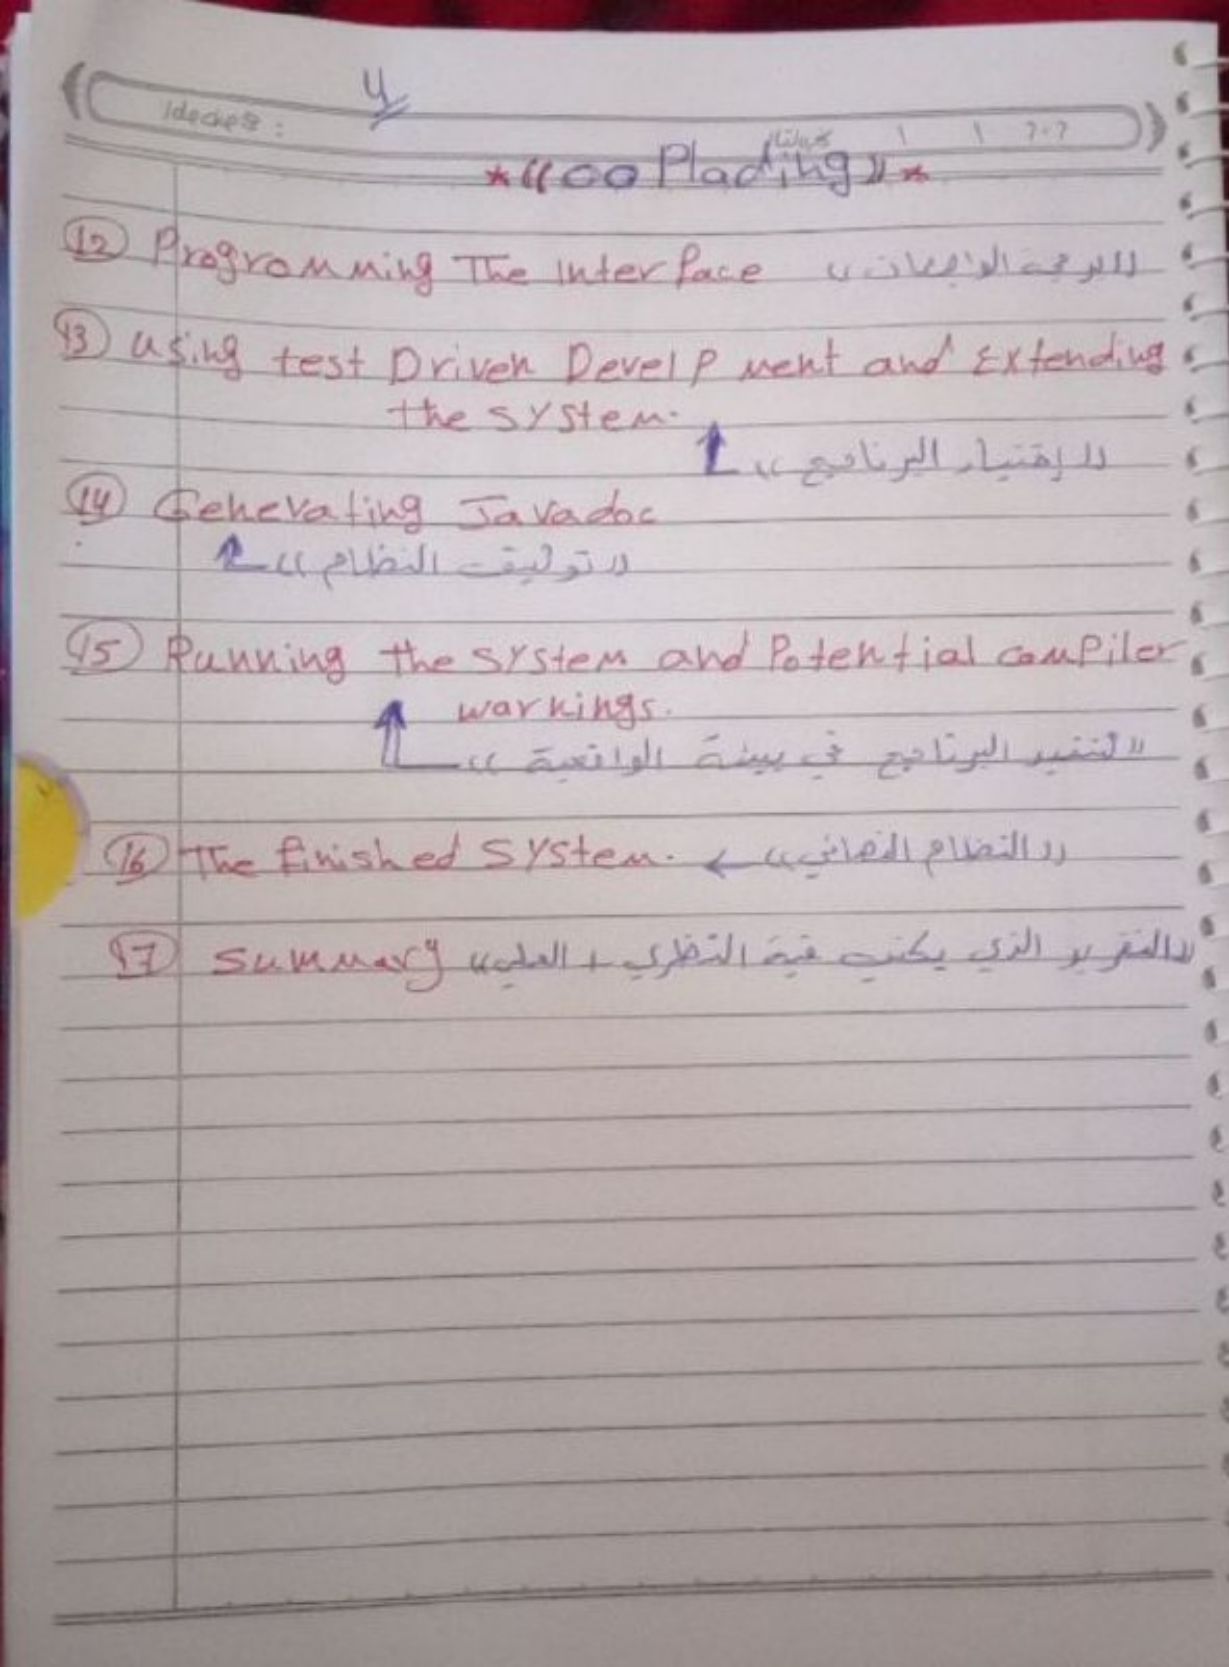 4
*((OO Plading))*
(12) Programming The Interface ((البرمجة الواجهات))
(13) Using test Driven Develpment and Extending
the system.
((إختبار البرنامج))
(14) Generating Javadoc
((توثيق النظام))
(15) Running the system and Potential compiler
warnings.
((تنفيذ البرنامج في بيئة الواقعية))
(16) The finished system. ((النظام النهائي))
(17) Summary ((التقرير الذي يكتب فية النظري + العملي))